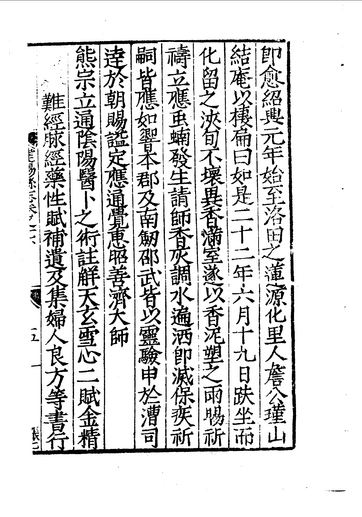 即愈紹興元年始至洛田之蓮源化里人詹公瑾山
結庵以棲扁曰如是二十二年六月十九日趺坐而
化留之浹旬不壞異香滿室遂以香泥塑之雨賜祈
禱立應虫蝻發生請師香灰調水遍洒即滅保疾祈
嗣皆應如響本郡及南劔邵武皆以靈驗申於漕司
逹於朝賜謚定應通覺惠昭善濟大師
熊宗立通隂陽醫卜之術註觧天玄雪心二賦金精
難經脉經藥性賦補遺及集婦人良方等書行